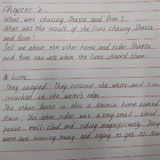 Chapter 2:
What was chasing Shasta and Bree?
What was the result of the lions chasing Shasta and Bree?
Tell me about the other horse and rider Shasta and Bree ran into when the lions chased them.
A. Lions.
They escaped. They crossed the water and lions
on the water's edge.
The other horse is also a Narnia horse named
Hwin. The other rider was a very small, slender
person, mail-clad and riding magnificently. They
were running away, and trying to get to